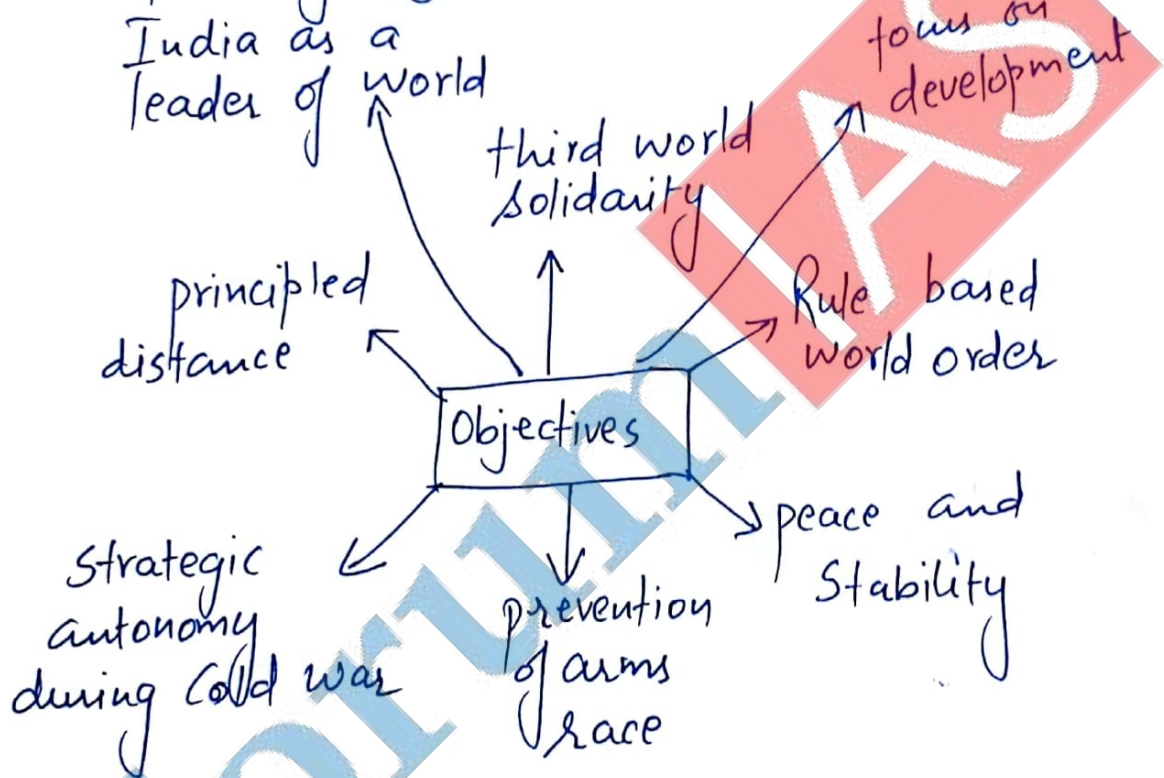 India as a
leader of world
focus on
development
third world
solidarity
principled
distance
Rule based
world order
Objectives
peace and
Stability
Strategic
autonomy
during Cold war
prevention
of arms
race
orum IAS